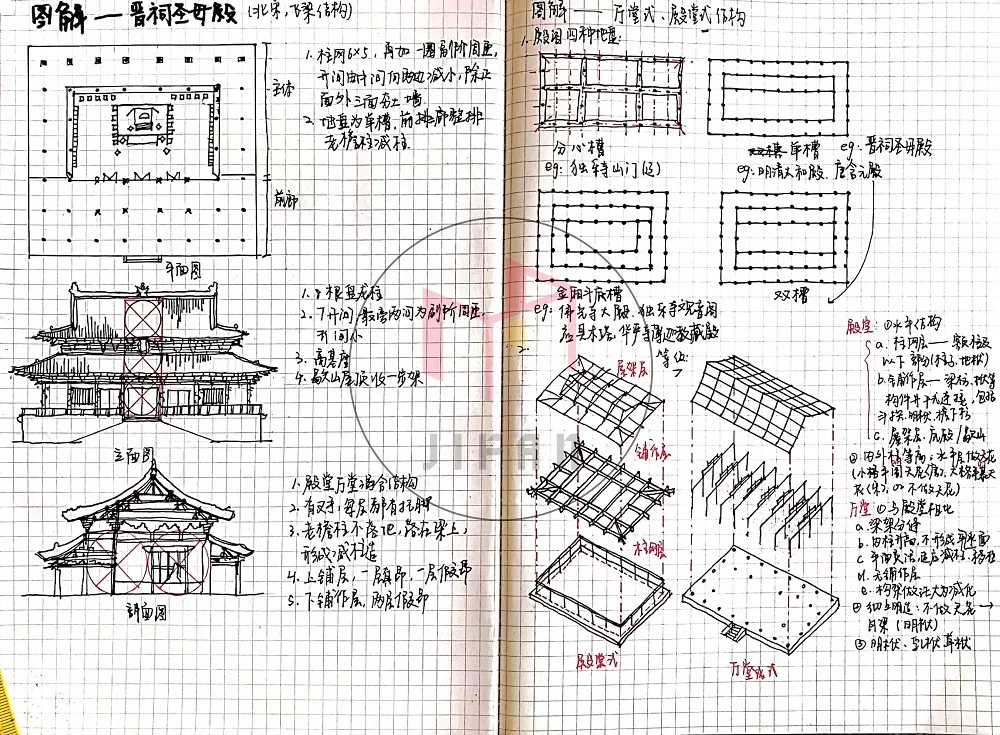 图解—晋祠圣母殿 (北宋,飞梁结构)
1. 柱网6×5,再加一圈副阶周匝,
开间由中间向两边减小,除正
面外三面夯土墙
2. 地盘为单槽,前排廊整排
老檐柱减柱.
主体
前廊
平面图
1. 8根盘龙柱
2. 7开间,最旁两间为副阶周匝,
开间小
3. 高基座
4. 歇山屋顶收一步架
立面图
1. 殿堂厅堂混合结构
2. 有叉手,每层都有托脚
3. 老檐柱不落地,踏在梁上,
形成减柱造
4. 上铺层,一层真昂,一层假昂
5. 下铺作层,两层假昂
剖面图
图解——厅堂式、殿堂式结构
1. 殿阁四种地盘:
分心槽
eg: 独乐寺山门(辽)
单槽
eg: 晋祠圣母殿
eg: 明清太和殿、唐含元殿
金厢斗底槽
eg: 佛光寺大殿、独乐寺观音阁
应县木塔、华严寺薄迦教藏殿
双槽
2.
等位
屋架层
铺作层
柱网层
殿堂式
厅堂式
殿堂: ①水平结构
a. 柱网层——
以下部分(柱子、地栿)
b. 铺作层——梁枋、栿等
构件井干式连接,包括
斗拱、明栿
c. 屋架层、庑殿/歇山
②内外柱等高;水平层做天花
厅堂 ①与殿堂相比
a. 梁架分椽
b. 内柱升高,不形成水平面
c. 平面灵活,适应减柱、移柱
d. 无铺作层
e. 构架做法大为减化
②彻上明造:不做天花→
月梁(明栿)
③明栿、乳栿、草栿